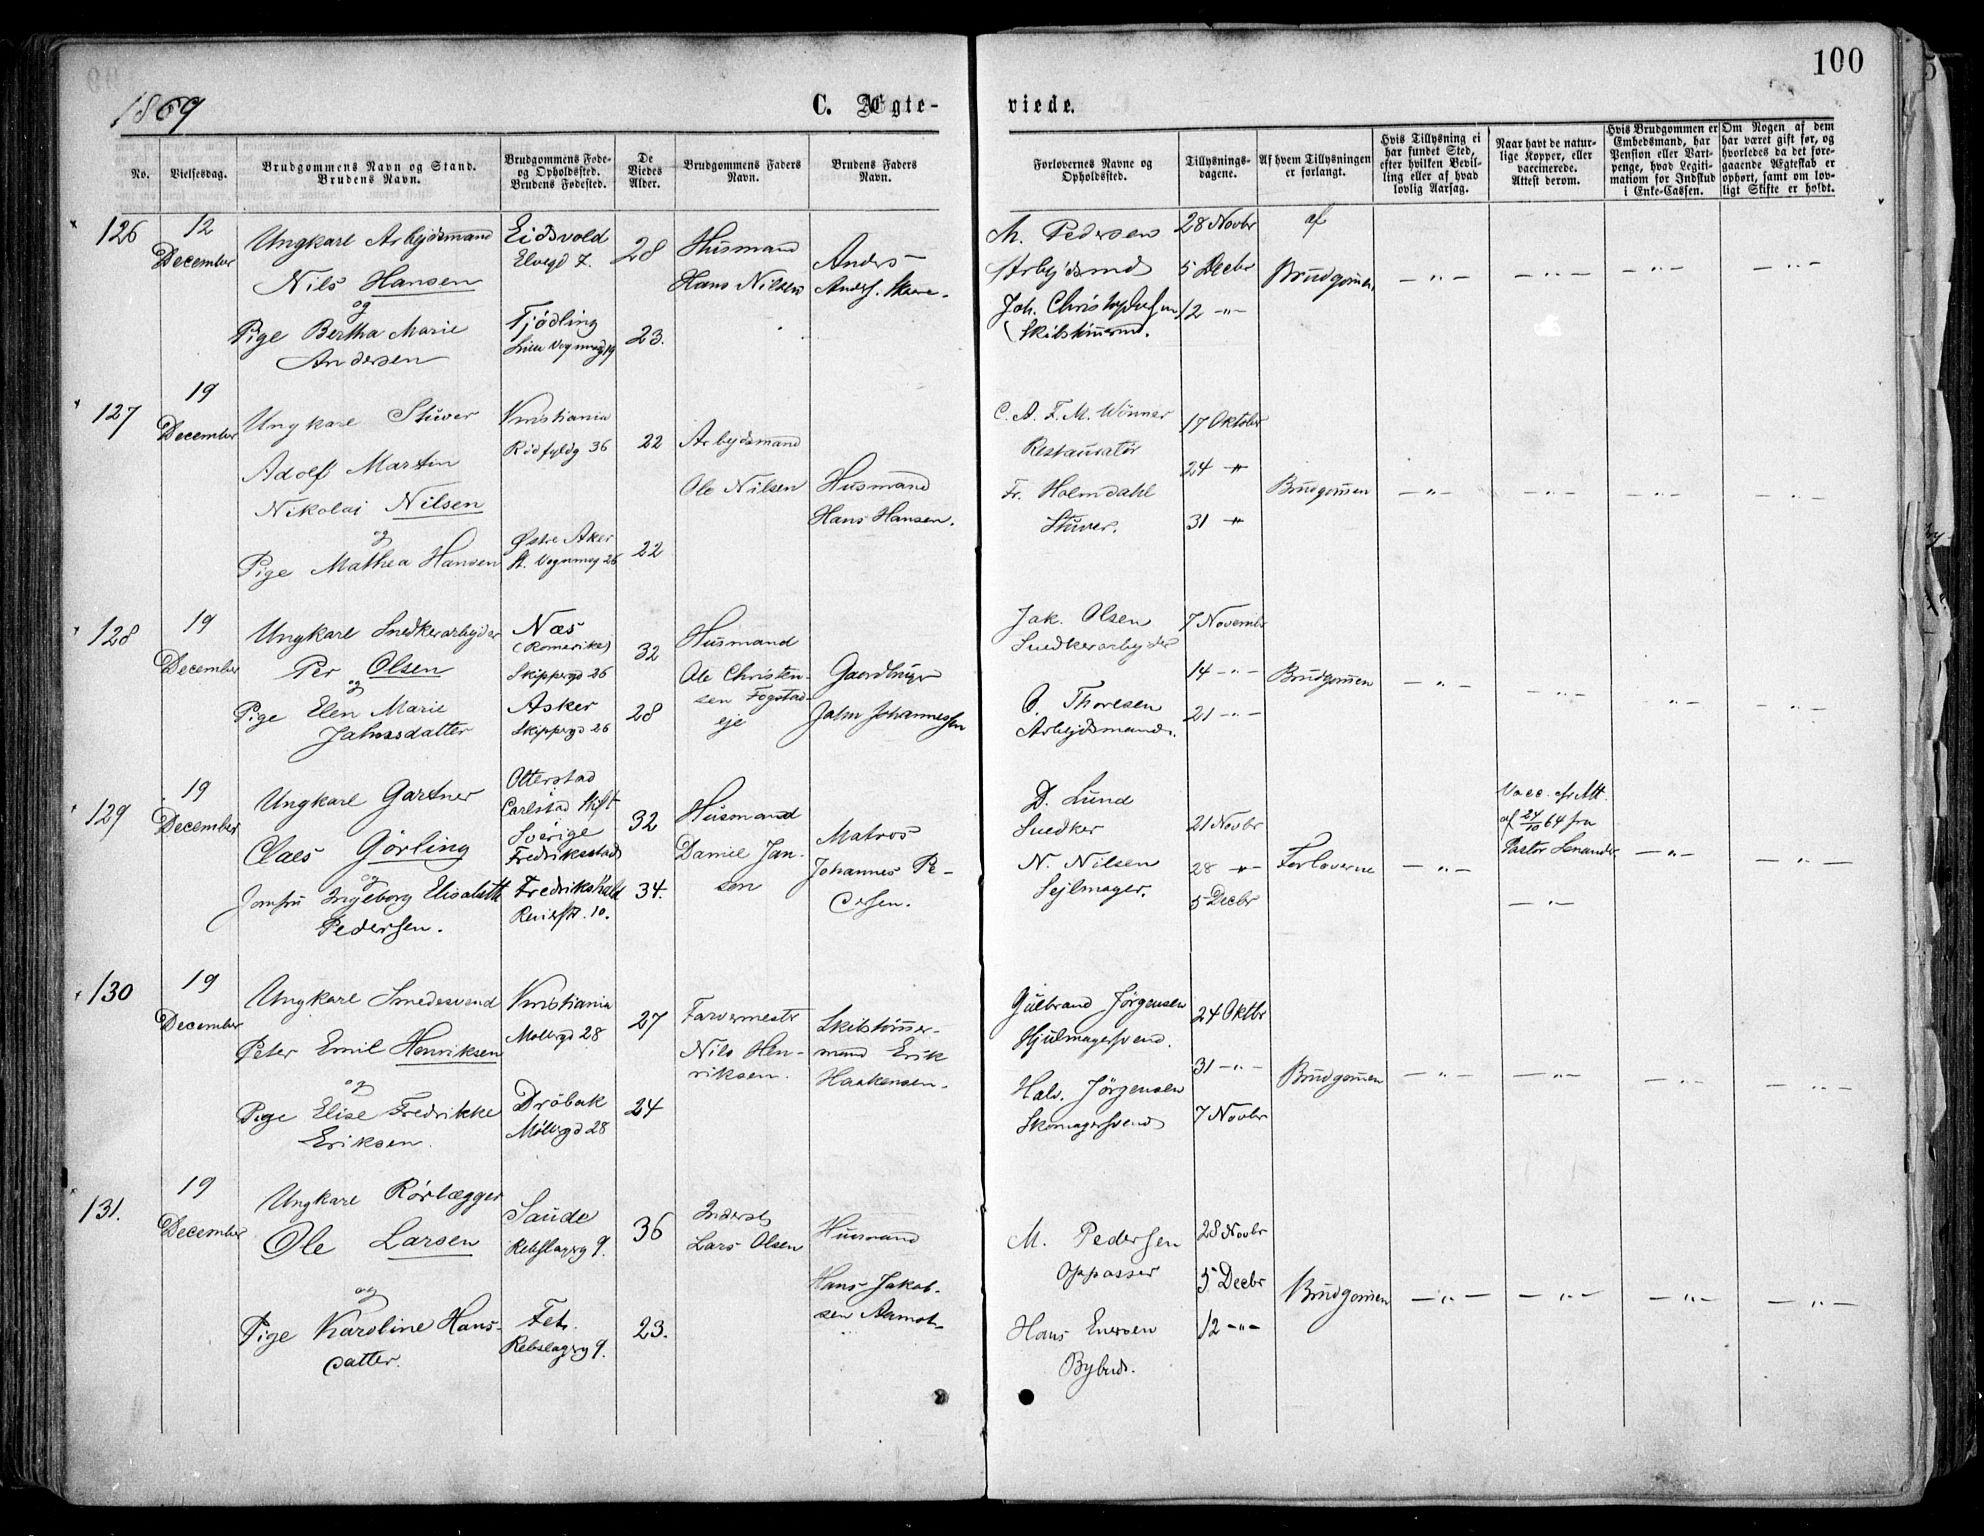 100
1869
C. Ægte-
viede.
No.
Vielsesdag.
Brudgommens Navn og Stand.
Brudens Navn.
Brudgommens Føde-
og Opholdssted.
Brudens Fødested.
De
Viedes
Alder.
Brudgommens Faders
Navn.
Brudens Faders
Navn.
Forlovernes Navne og
Opholdssted.
Tillysnings-
dagene.
Af hvem Tillysningen
er forlangt.
Hvis Tillysning ei
har fundet Sted,
efter hvilken Bevil-
ling eller af hvad
lovlig Aarsag.
Naar havt de natur-
lige Kopper, eller
vaccinerede.
Attest derom.
Hvis Brudgommen er
Embedsmand, har
Pension eller Vart-
penge, hvad Legiti-
mation for Indskud
i Enke-Cassen.
Om Nogen af dem
har været gift før, og
hvorledes da det fore-
gaaende Ægteskab er
ophørt, samt om lov-
ligt Skifte er holdt.
126
12
December
Ungkarl Arbejdsmand
Nils Hansen
og
Pige Bertha Marie
Andersen
Eidsvold
Elvegd 7.
Tjødling
Lille Vognmdg 19
28
23.
Husmand
Hans Nilsen
Anders
M. Pedersen
Arbejdsmd
Joh. Christophersen
Skibstømrmd.
28 Novbr
5 Decbr
12 -"-
af
Brudgommen
-"- -"- -"- -"-
127
19
December
Ungkarl Stuver
Adolf Martin
Nikolai Nilsen
og
Pige Mathea Hansen
Kristiania
Rødfyldg 36
Østre Aker
St. Vognmdg 26
22
22
Arbejdsmand
Ole Nilsen
Husmand
Hans Hansen.
C. A. F. M. Wönner
Restauratør
Fr. Holmdahl
Stuver.
17 Oktober
24 -"-
31 -"-
Brudgommen
-"- -"- -"- -"-
128
19
December
Ungkarl Snedkerarbejder
Per Olsen
og
Pige Elen Marie
Jahnsdatter
Næs
(Romerike)
Skippergd 26
Asker
Skippergd 26
32
28
Husmand
Ole Christen-
sen Fogstad-
eje
Gaardbruger
Jahn Johannessen
Jak. Olsen
Snedkerarbejder
O. Thoresen
Arbejdsmand.
7 Novembr
14 -"-
21 -"-
Brudgommen
-"- -"- -"- -"-
129
19
December
Ungkarl Gartner
Claes Görling
og
Jomfru Ingeborg Elisabeth
Pedersen.
Otterstad
Carlstad Stift
Sverige
Fredriksstad
Fredrikshald
Revierst. 10.
32
34.
Husmand
Daniel Jan-
sen
Matros
Johannes Pe-
dersen.
D. Lund
Snedker
N. Nilsen
Sejlmager.
21 Novbr
28 -"-
5 Decbr
Forloverne
-"-
Vacc. efr Att.
af 24/10 64 fra
Pastor Lenander
-"-
-"- -"-
130
19
December
Ungkarl Smedesvend
Peter Emil Henriksen
og
Pige Elise Fredrikke
Eriksen.
Kristiania
Møllergd 28
Drøbak
Møllergd 28
27
24
Farvermester
Nils Hen-
riksen.
Skibstømmer-
mand Erik
Haakensen.
Gulbrand Jørgensen
Hjulmagersvend.
Halv. Jørgensen
Skomagersvend
24 Oktbr
31 -"-
7 Novbr
Brudgommen
-"- -"- -"- -"-
131.
19
December
Ungkarl Rørlægger
Ole Larsen
og
Pige Karoline Hans-
datter.
Saude
Rebslagerg 9.
Fet.
Rebslagerg 9.
36
23.
Inderst
Lars Olsen
Husmand
Hans Jakob-
sen Aamot.
M. Pedersen
Oppasser
Hans Enersen
Bybud.
28 Novbr
5 Decbr
12 -"-
Brudgommen
-"- -"- -"- -"-